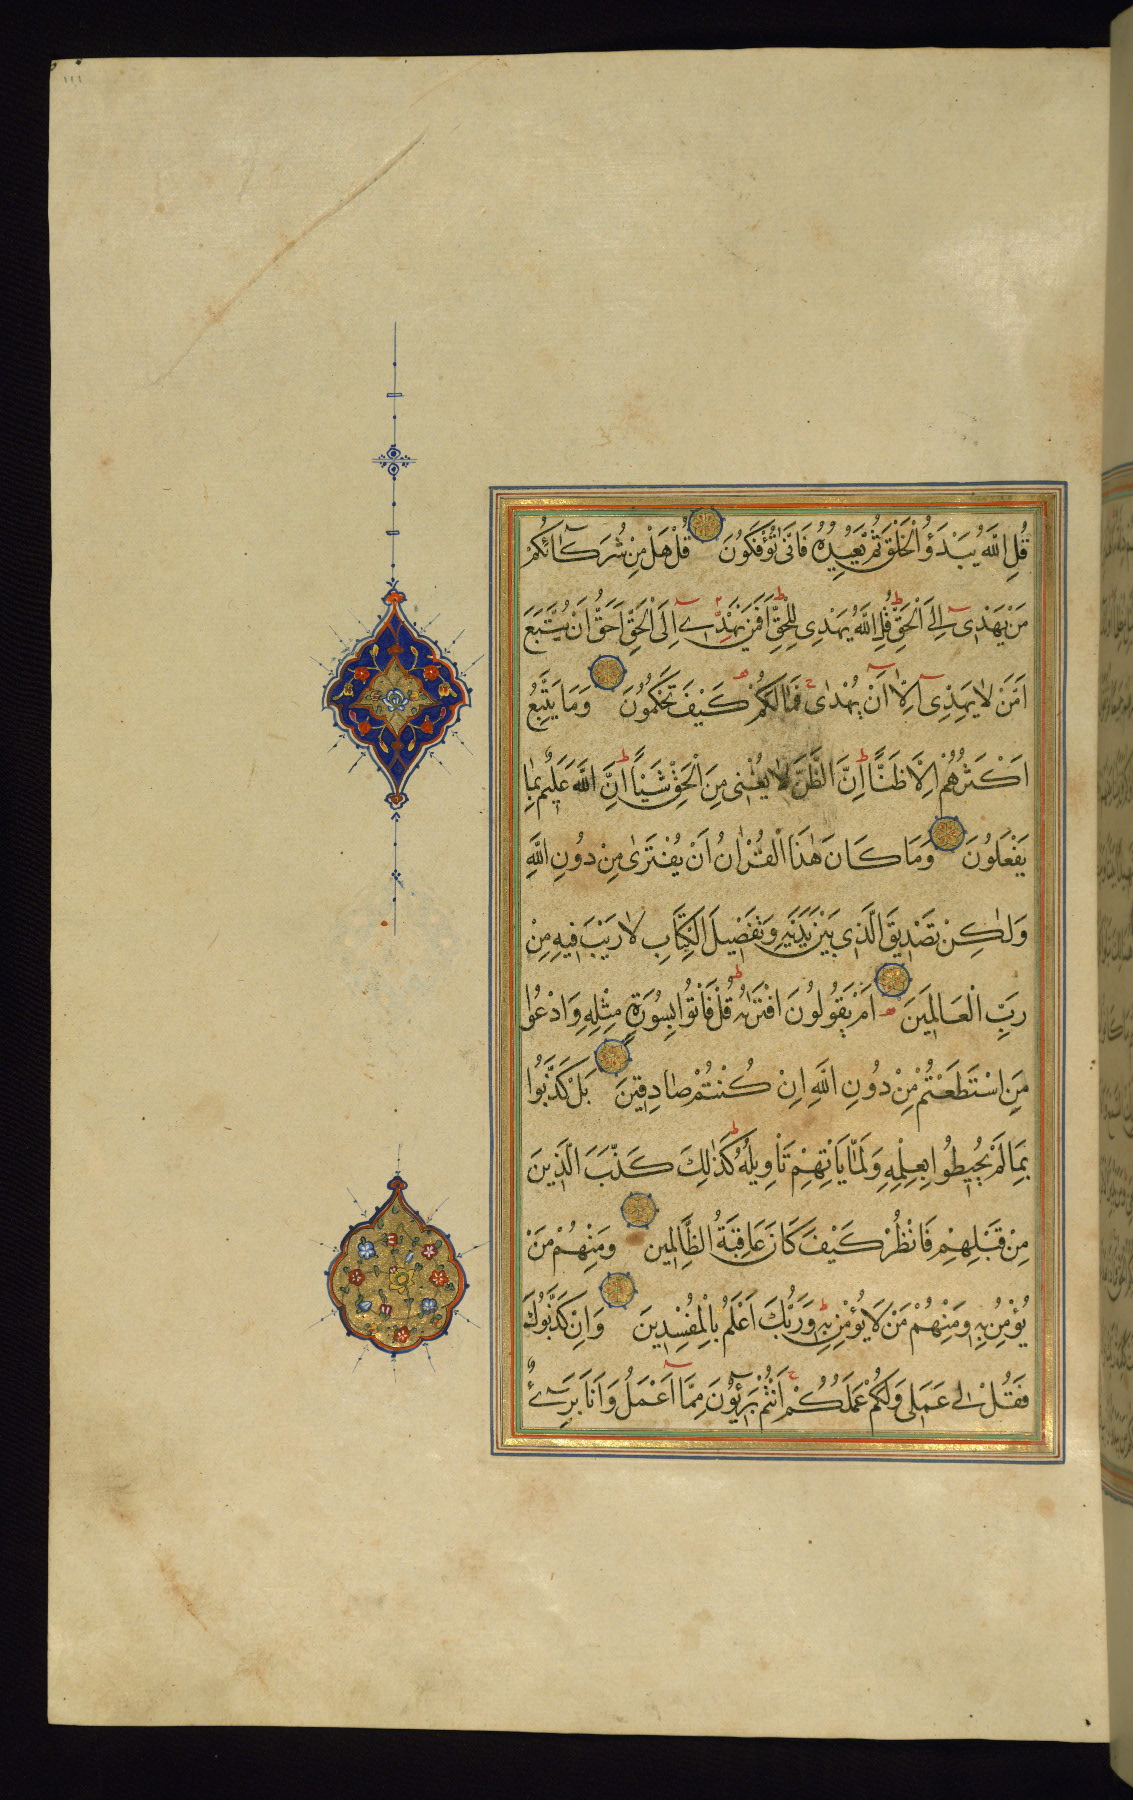 ١١١
قُلِ اللَّهُ يَبْدَؤُ الْخَلْقَ ثُمَّ يُعِيدُهُ فَاَنّٰى تُؤْفَكُونَ قُلْ هَلْ مِنْ شُرَكَآئِكُمْ
مَنْ يَهْدِىٓ اِلَى الْحَقِّ قُلِ اللَّهُ يَهْدِى لِلْحَقِّ اَفَمَنْ يَهْدِىٓ اِلَى الْحَقِّ اَحَقُّ اَنْ يُتَّبَعَ
اَمَّنْ لَا يَهِدِّىٓ اِلَّآ اَنْ يُهْدٰى فَمَا لَكُمْ كَيْفَ تَحْكُمُونَ وَمَا يَتَّبِعُ
اَكْثَرُهُمْ اِلَّا ظَنًّا اِنَّ الظَّنَّ لَا يُغْنِى مِنَ الْحَقِّ شَيْئًا اِنَّ اللَّهَ عَلِيمٌ بِمَا
يَفْعَلُونَ وَمَا كَانَ هٰذَا الْقُرْاٰنُ اَنْ يُفْتَرٰى مِنْ دُونِ اللَّهِ
وَلٰكِنْ تَصْدِيقَ الَّذِى بَيْنَ يَدَيْهِ وَتَفْصِيلَ الْكِتَابِ لَا رَيْبَ فِيهِ مِنْ
رَبِّ الْعَالَمِينَ اَمْ يَقُولُونَ افْتَرٰىهُ قُلْ فَأْتُوا بِسُورَةٍ مِثْلِهِ وَادْعُوا
مَنِ اسْتَطَعْتُمْ مِنْ دُونِ اللَّهِ اِنْ كُنْتُمْ صَادِقِينَ بَلْ كَذَّبُوا
بِمَا لَمْ يُحِيطُوا بِعِلْمِهِ وَلَمَّا يَأْتِهِمْ تَأْوِيلُهُ كَذٰلِكَ كَذَّبَ الَّذِينَ
مِنْ قَبْلِهِمْ فَانْظُرْ كَيْفَ كَانَ عَاقِبَةُ الظَّالِمِينَ وَمِنْهُمْ مَنْ
يُؤْمِنُ بِهِ وَمِنْهُمْ مَنْ لَا يُؤْمِنُ بِهِ وَرَبُّكَ اَعْلَمُ بِالْمُفْسِدِينَ وَاِنْ كَذَّبُوكَ
فَقُلْ لِى عَمَلِى وَلَكُمْ عَمَلُكُمْ اَنْتُمْ بَرِيٓئُونَ مِمَّآ اَعْمَلُ وَاَنَا بَرِىٓءٌ